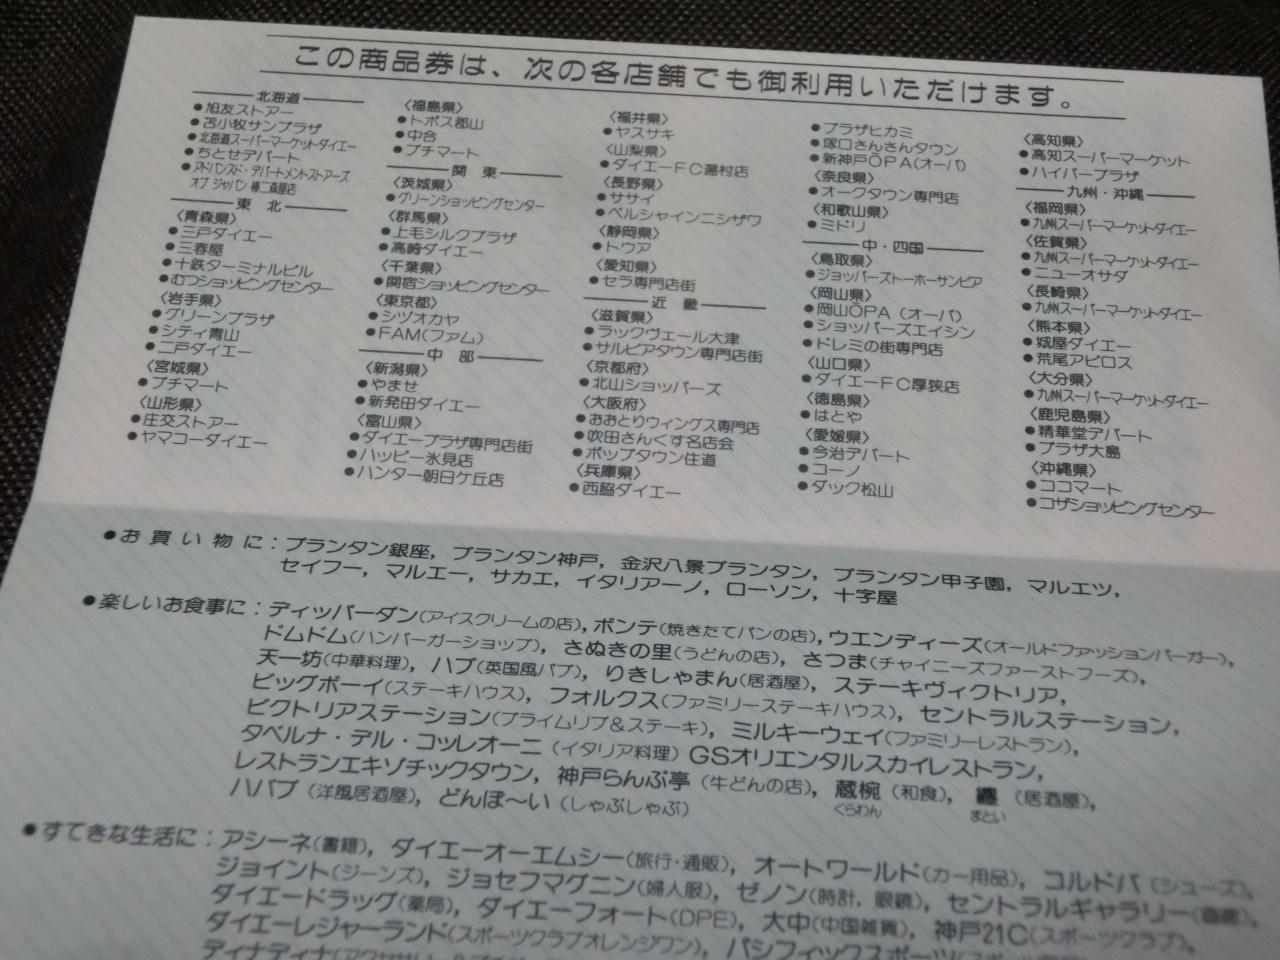 この商品券は、次の各店舗でも御利用いただけます。
北海道
●旭友ストアー
●苫小牧サンプラザ
●北海道スーパーマーケットダイエー
●ちとせデパート
●アドバンスド・デパートメントストアーズ
オブ ジャパン 棒二森屋店
東 北
〈青森県〉
●三戸ダイエー
●三春屋
●十鉄ターミナルビル
●むつショッピングセンター
〈岩手県〉
●グリーンプラザ
●シティ青山
●二戸ダイエー
〈宮城県〉
●プチマート
〈山形県〉
●庄交ストアー
●ヤマコーダイエー
〈福島県〉
●トポス郡山
●中合
●プチマート
関 東
〈茨城県〉
●グリーンショッピングセンター
〈群馬県〉
●上毛シルクプラザ
●高崎ダイエー
〈千葉県〉
●関宿ショッピングセンター
〈東京都〉
●シヅオカヤ
●FAM(ファム)
中 部
〈新潟県〉
●やませ
●新発田ダイエー
〈富山県〉
●ダイエープラザ専門店街
●ハッピー氷見店
●ハンター朝日ケ丘店
〈福井県〉
●ヤスサキ
〈山梨県〉
●ダイエーFC湯村店
〈長野県〉
●ササイ
●ベルシャインニシザワ
〈静岡県〉
●トウア
〈愛知県〉
●セラ専門店街
近 畿
〈滋賀県〉
●ラックヴェール大津
●サルビアタウン専門店街
〈京都府〉
●北山ショッパーズ
〈大阪府〉
●おおとりウィングス専門店
●吹田さんくす名店会
●ポップタウン住道
〈兵庫県〉
●西脇ダイエー
●プラザヒカミ
●塚口さんさんタウン
●新神戸OPA(オーパ)
〈奈良県〉
●オークタウン専門店
〈和歌山県〉
●ミドリ
中・四国
〈鳥取県〉
●ショッパーズストーホーサンピア
〈岡山県〉
●岡山OPA（オーパ）
●ショッパーズエイシン
●ドレミの街専門店
〈山口県〉
●ダイエーFC厚狭店
〈徳島県〉
●はとや
〈愛媛県〉
●今治デパート
●コーノ
●ダック松山
〈高知県〉
●高知スーパーマーケット
●ハイパープラザ
九州・沖縄
〈福岡県〉
●九州スーパーマーケットダイエー
〈佐賀県〉
●九州スーパーマーケットダイエー
●ニューオサダ
〈長崎県〉
●九州スーパーマーケットダイエー
〈熊本県〉
●城屋ダイエー
●荒尾アピロス
〈大分県〉
●九州スーパーマーケットダイエー
〈鹿児島県〉
●精華堂デパート
●プラザ大島
〈沖縄県〉
●ココマート
●コザショッピングセンター
●お買い物に：プランタン銀座，プランタン神戸，金沢八景プランタン，プランタン甲子園，マルエツ，
セイフー，マルエー，サカエ，イタリアーノ，ローソン，十字屋
●楽しいお食事に：ディッパーダン(アイスクリームの店)，ボンテ(焼きたてパンの店)，ウエンディーズ(オールドファッションバーガー)，
ドムドム(ハンバーガーショップ)，さぬきの里(うどんの店)，さつま(チャイニーズファーストフーズ)，
天一坊(中華料理)，ハブ(英国風パブ)，りきしゃまん(居酒屋)，ステーキヴィクトリア，
ビッグボーイ(ステーキハウス)，フォルクス(ファミリーステーキハウス)，セントラルステーション，
ビクトリアステーション(プライムリブ＆ステーキ)，ミルキーウェイ(ファミリーレストラン)，
タベルナ・デル・コッレオーニ（イタリア料理）GSオリエンタルスカイレストラン，
レストランエキゾチックタウン，神戸らんぷ亭（牛どんの店)，蔵椀（和食)，纏（居酒屋)，
くらわん まとい
ハバブ（洋風居酒屋)，どんぽ〜い（しゃぶしゃぶ）
●すてきな生活に：アシーネ(書籍)，ダイエーオーエムシー(旅行・通販)，オートワールド(カー用品)，コルドバ（シューズ)，
ジョイント(ジーンズ)，ジョセフマグニン(婦人服)，ゼノン(時計，眼鏡)，セントラルギャラリー(画廊)，
ダイエードラッグ(薬局)，ダイエーフォート(DPE)，大中(中国雑貨)，神戸21C(スポーツクラブ)，
ダイエーレジャーランド(スポーツクラブオレンジワン)，パシフィックスポーツ
ディナディナ